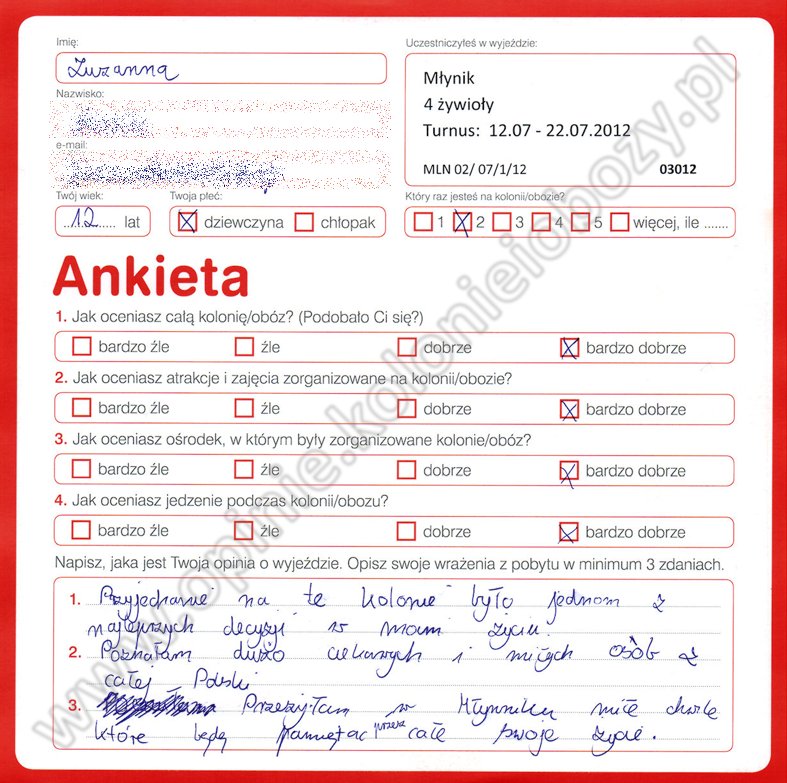 Imię:
Zuzanna
Uczestniczyłeś w wyjeździe:
Młynik
4 żywioły
Turnus: 12.07 - 22.07.2012
MLN 02/ 07/1/12 03012
Nazwisko:
e-mail:
Twój wiek:
12 lat
Twoja płeć:
dziewczyna chłopak
Który raz jesteś na kolonii/obozie?
1 2 3 4 5 więcej, ile .......
Ankieta
1. Jak oceniasz całą kolonię/obóz? (Podobało Ci się?)
bardzo źle źle dobrze bardzo dobrze
2. Jak oceniasz atrakcje i zajęcia zorganizowane na kolonii/obozie?
bardzo źle źle dobrze bardzo dobrze
3. Jak oceniasz ośrodek, w którym były zorganizowane kolonie/obóz?
bardzo źle źle dobrze bardzo dobrze
4. Jak oceniasz jedzenie podczas kolonii/obozu?
bardzo źle źle dobrze bardzo dobrze
Napisz, jaka jest Twoja opinia o wyjeździe. Opisz swoje wrażenia z pobytu w minimum 3 zdaniach.
1. Przyjechanie na te kolonie było jednom z
najlepszych decyzji w moim życiu.
2. Poznałam dużo ciekawych i miłych osób z
całej Polski
3. Przeżyłam w Młynniku miłe chwile
które będę pamiętać przez całe swoje życie.
www.opinie.kolonieiobozy.pl